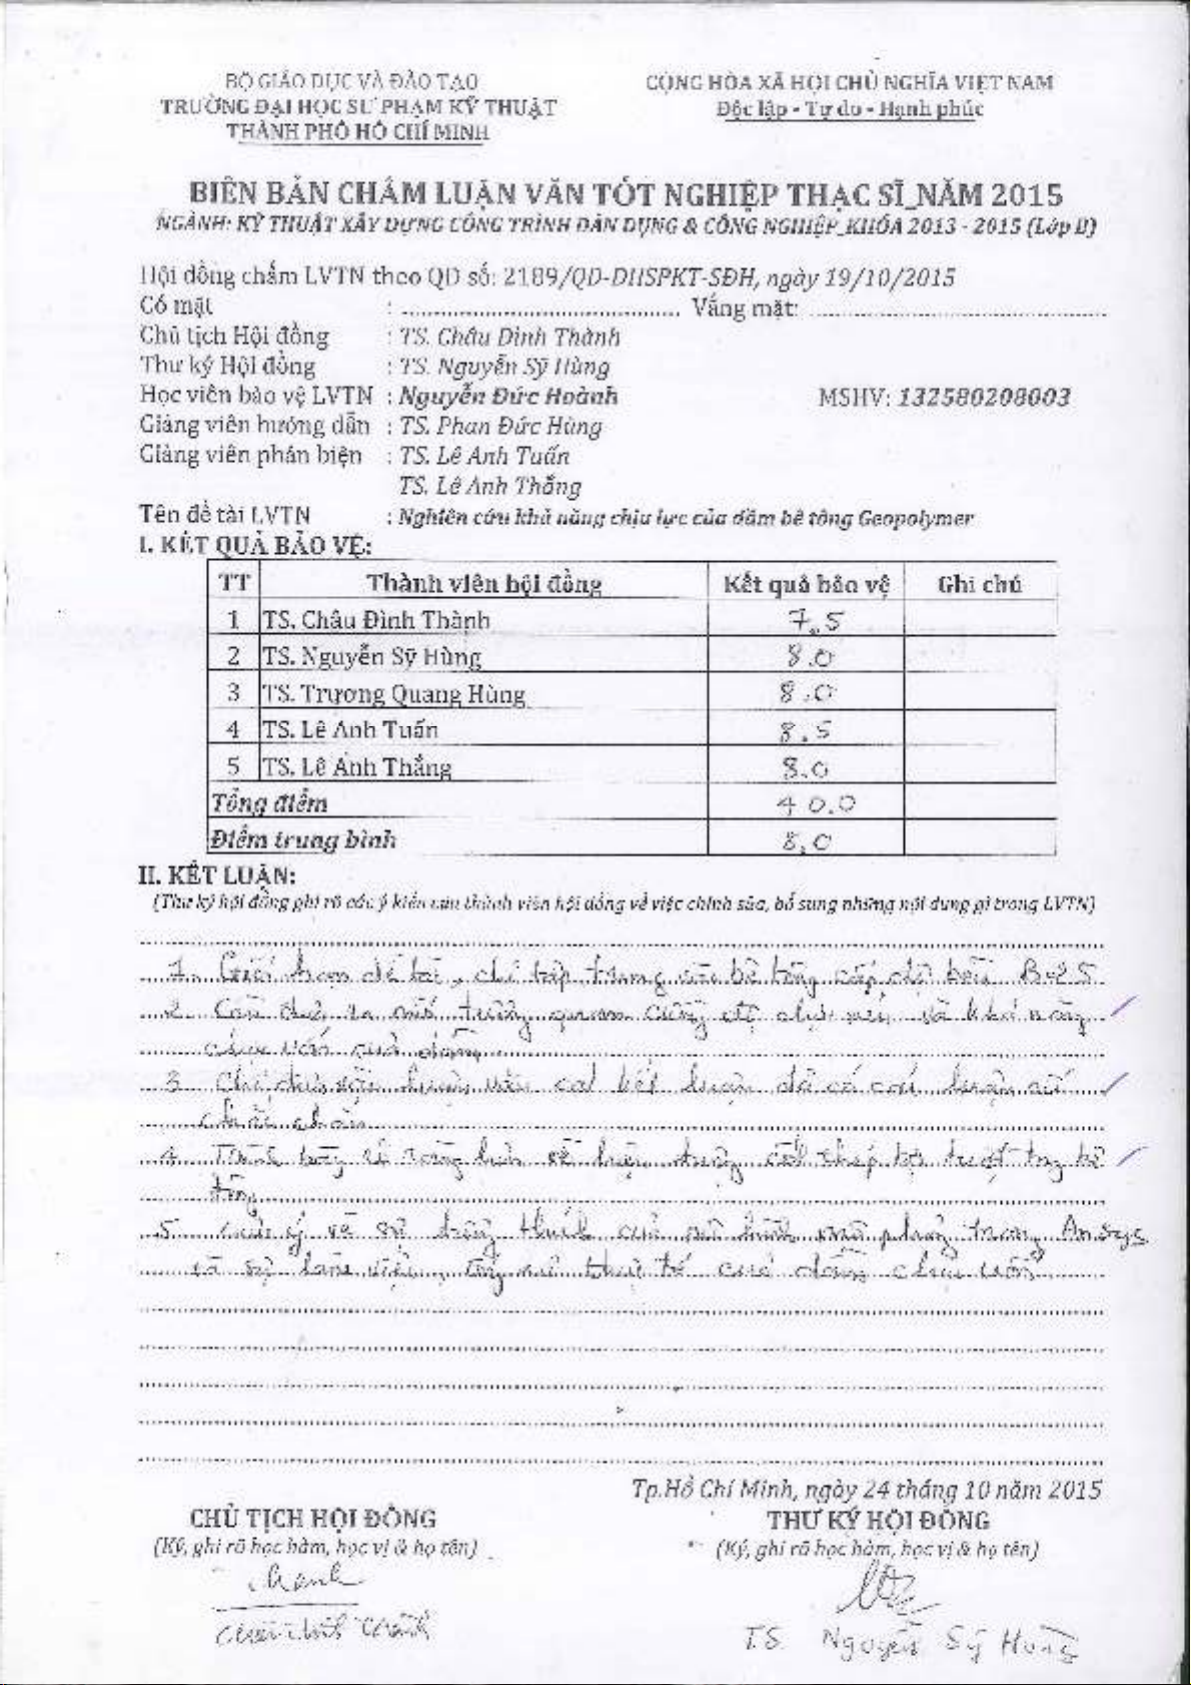 BỘ GIÁO DỤC VÀ ĐÀO TẠO
TRƯỜNG ĐẠI HỌC SƯ PHẠM KỸ THUẬT
THÀNH PHỐ HỒ CHÍ MINH
CỘNG HÒA XÃ HỘI CHỦ NGHĨA VIỆT NAM
Độc lập - Tự do - Hạnh phúc
BIÊN BẢN CHẤM LUẬN VĂN TỐT NGHIỆP THẠC SĨ_NĂM 2015
NGÀNH: KỸ THUẬT XÂY DỰNG CÔNG TRÌNH DÂN DỤNG & CÔNG NGHIỆP_KHÓA 2013 - 2015 (Lớp B)
Hội đồng chấm LVTN theo QĐ số: 2189/QĐ-ĐHSPKT-SĐH, ngày 19/10/2015
Có mặt : ........ Vắng mặt: ........
Chủ tịch Hội đồng : TS. Châu Đình Thành
Thư ký Hội đồng : TS. Nguyễn Sỹ Hùng
Học viên bảo vệ LVTN : Nguyễn Đức Hoành MSHV: 132580208003
Giảng viên hướng dẫn : TS. Phan Đức Hùng
Giảng viên phản biện : TS. Lê Anh Tuấn
TS. Lê Anh Thắng
Tên đề tài LVTN : Nghiên cứu khả năng chịu lực của dầm bê tông Geopolymer
I. KẾT QUẢ BẢO VỆ:
TT Thành viên hội đồng Kết quả bảo vệ Ghi chú
1 TS. Châu Đình Thành 7.5
2 TS. Nguyễn Sỹ Hùng 8.0
3 TS. Trương Quang Hùng 8.0
4 TS. Lê Anh Tuấn 8.5
5 TS. Lê Anh Thắng 8.0
Tổng điểm 40.0
Điểm trung bình 8,0
II. KẾT LUẬN:
(Thư ký hội đồng ghi rõ các ý kiến của thành viên hội đồng về việc chỉnh sửa, bổ sung những nội dung gì trong LVTN)
1. Giới hạn đề tài, chỉ tập trung vào bê tông cấp độ bền B25
2. Cần đưa ra mối tương quan cường độ chịu nén và khả năng
chịu uốn của dầm
3. kết luận
chắc chắn
4. Trình bày rõ ràng hơn về hiện tượng cốt thép bị trượt trong bê
tông
5. Lưu ý về sự thích của mô hình mô phỏng trong Ansys
và sự làm việc thực tế của dầm chịu uốn
Tp.Hồ Chí Minh, ngày 24 tháng 10 năm 2015
CHỦ TỊCH HỘI ĐỒNG
(Ký, ghi rõ học hàm, học vị & họ tên)
THƯ KÝ HỘI ĐỒNG
(Ký, ghi rõ học hàm, học vị & họ tên)
Thanh
Châu Đình Thành
TS. Nguyễn Sỹ Hùng